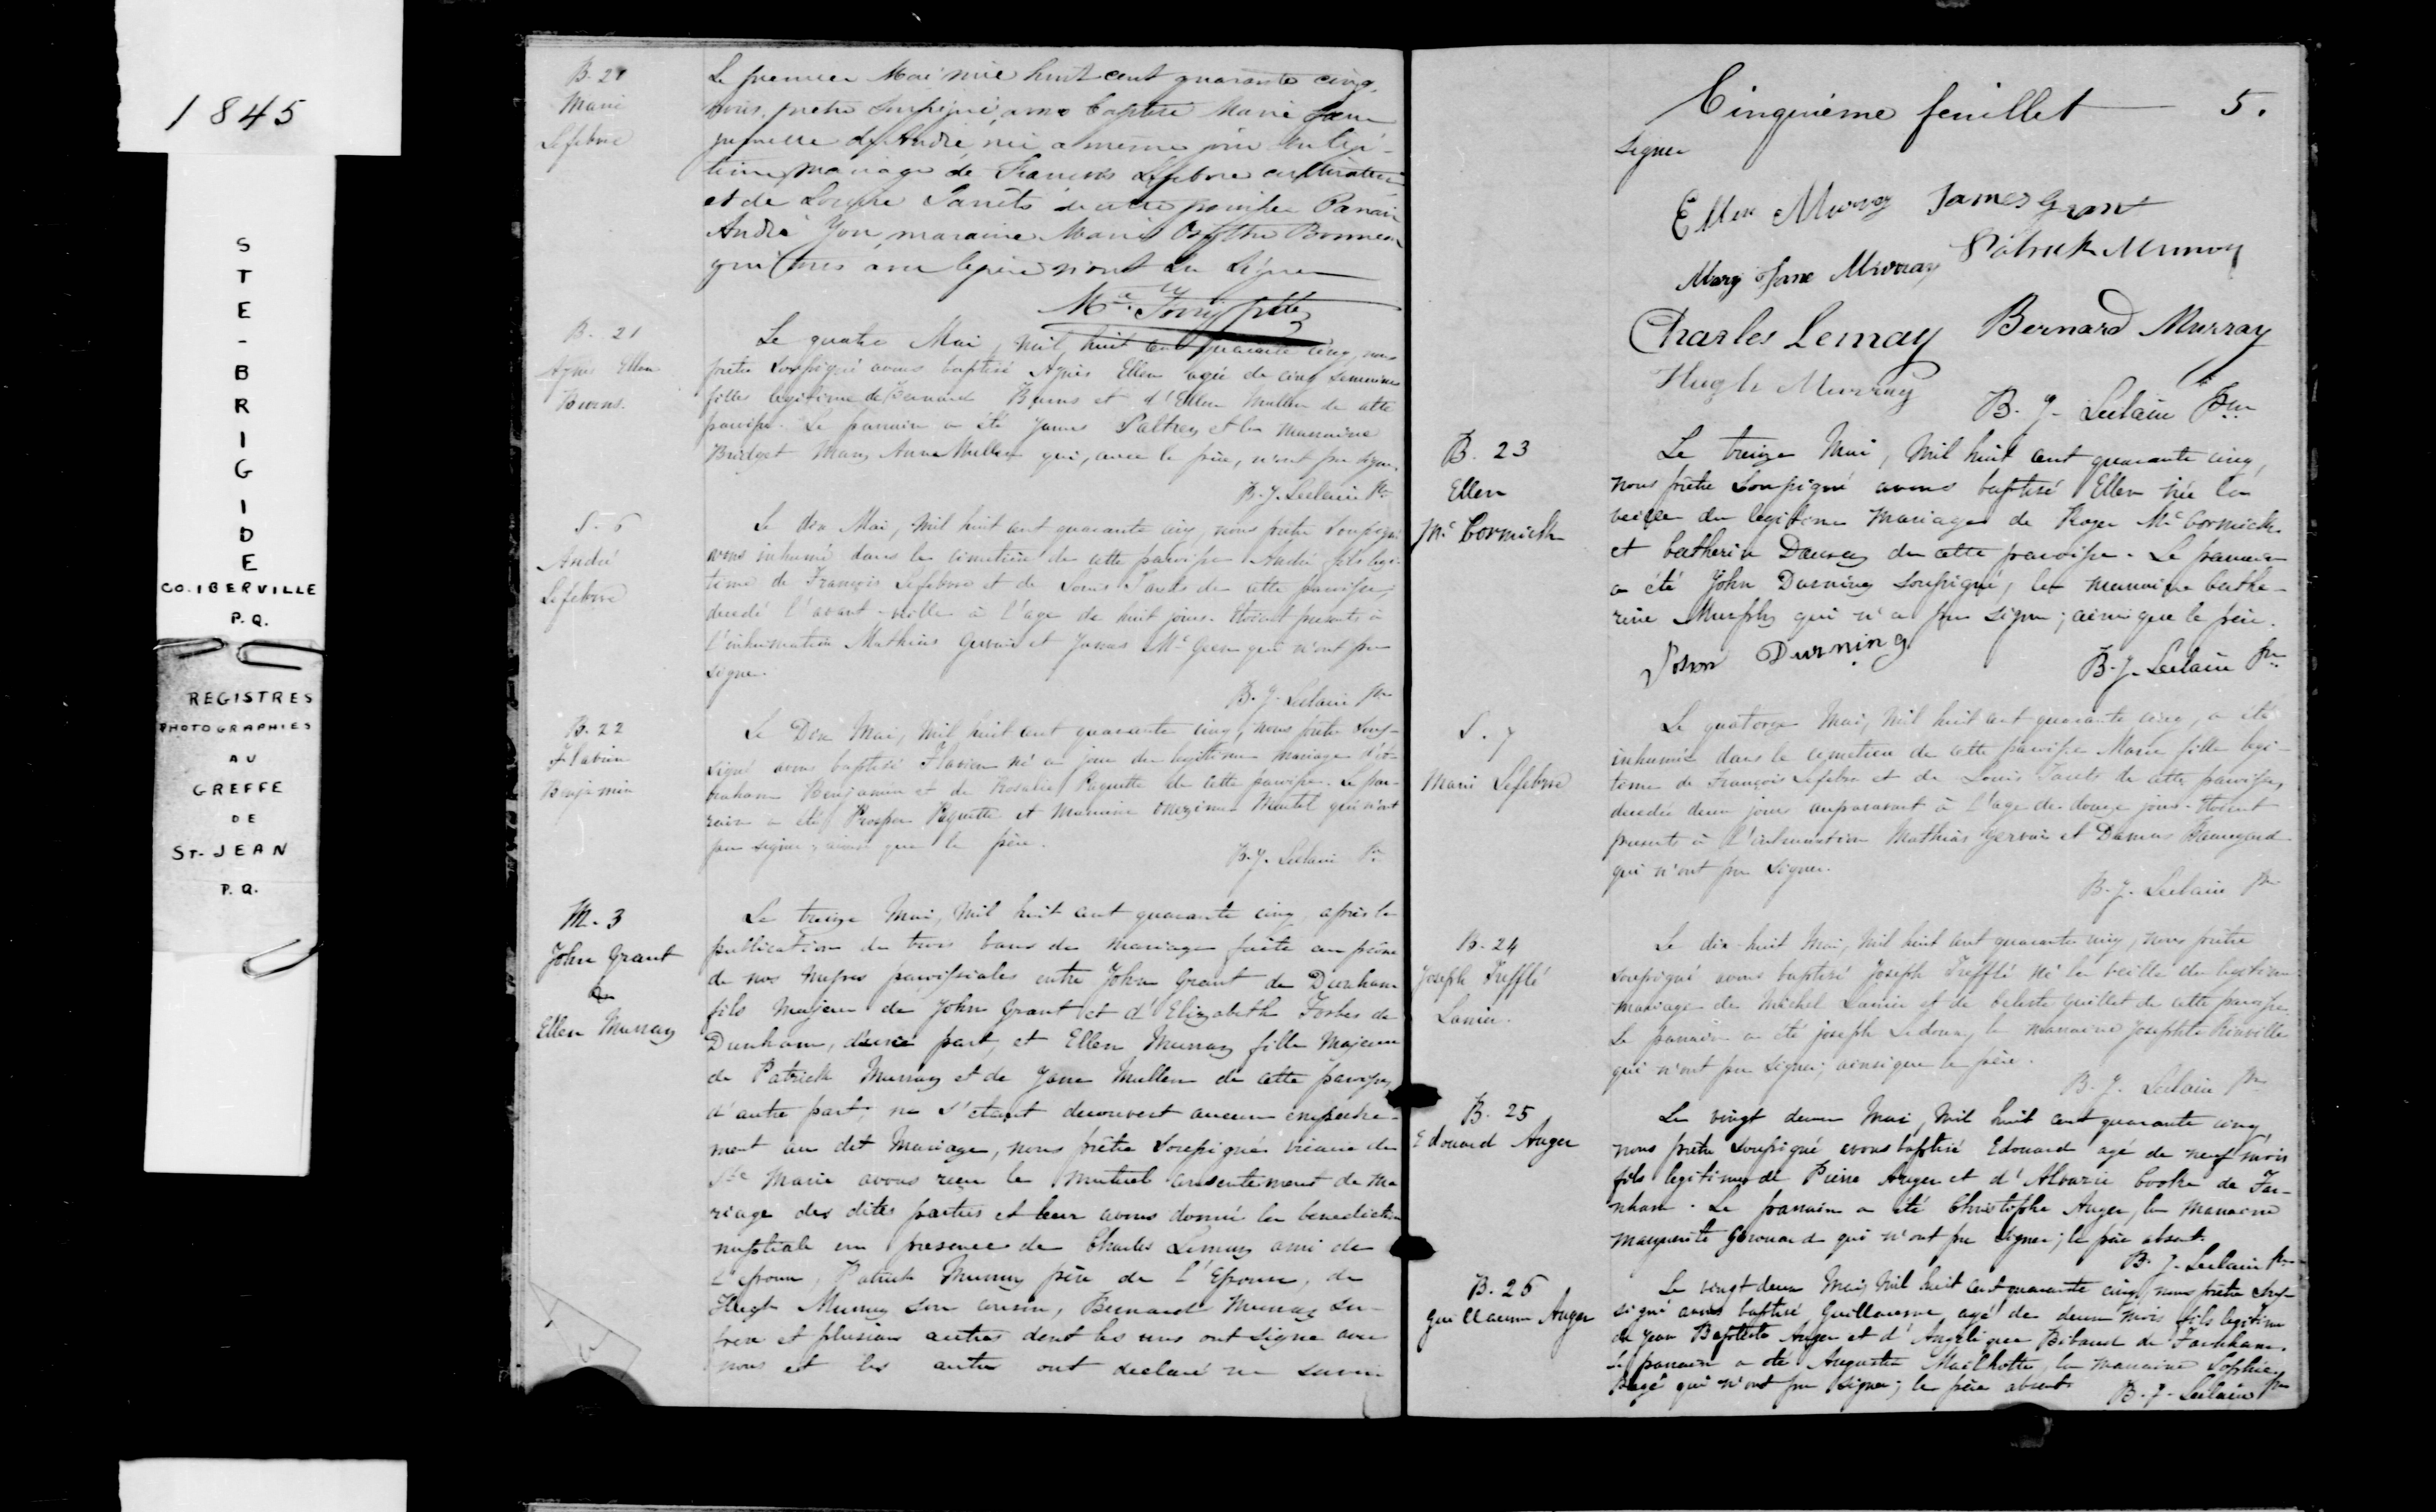 1845
STE-BRIGIDE
CO. IBERVILLE
P.Q.
REGISTRES
PHOTOGRAPHIES
AU
GREFFE
DE
ST-JEAN
P.Q.
B. 21
Marie
Lefebvre
Le premier Mai mil huit cent quarante cinq,
nous, prêtre soussigné, avons baptisé Marie
jumelle de André né le même jour du légi-
time mariage de François Lefebvre cultivateur
et de Louise de cette paroisse Parrain
André Yon, marraine Marie
qui avec le père n'ont su signer
Ptre
B. 21
Agnès Ellen
Burns.
Le quatre Mai, Mil huit cent quarante cinq, nous
prêtre soussigné avons baptisé Agnès Ellen agée de cinq semaines
fille legitime de Bernard Burns et d'Ellen Mullen de cette
paroisse. Le parrain a été James Paltrey et la marraine
Bridget Mary Anne Mullen qui, avec le père, n'ont pu signer.
B. J. Leclaire Ptre
S. 6
André
Lefebvre
Le dix Mai, Mil huit cent quarante cinq, nous prêtre soussigné
avons inhumé dans le cimetière de cette paroisse André fils légi-
time de François Lefebvre et de Louise de cette paroisse,
decedé l'avant-veille à l'age de huit jours. Etoient presents à
l'inhumation Mathias Gervais et James McGeen qui n'ont pu
signer.
B. J. Leclaire Ptre
B. 22
Flavien
Benjamin
Le Dix Mai, Mil huit cent quarante cinq, nous prêtre Sous-
signé avons baptisé Flavien né ce jour du legitime mariage d'A-
braham Benjamin et de Rosalie Paquette de cette paroisse. Le par-
rain a été Prosper Paquette et Marraine Onezime Martel qui n'ont
pu signer; ainsi que le père.
B. J. Leclaire Ptre
M. 3
John Grant
&
Ellen Murray
Le treize Mai, Mil huit cent quarante cinq après la
publication de trois bans de mariage faite au prône
de nos Messes paroissiales entre John Grant de Dunham
fils Majeur de John Grant et d'Elizabeth Forbes de
Dunham, d'une part, et Ellen Murray fille Majeure
de Patrick Murray et de Jane Mullen de cette paroisse
d'autre part; ne s'étant decouvert aucun empeche-
ment au dit Mariage, nous prêtre soussigné vicaire de
Ste Marie avons reçu le Mutuel consentement de Ma
riage des dites parties et leur avons donné la benediction
nuptiale en presence de Charles Lemay ami de
l'epoux, Patrick Murray père de l'Epouse, de
Hugh Murray son cousin, Bernard Murray son
frere et plusieurs autres dont les uns ont signé avec
nous et les autres ont declaré ne savoir
Cinquième feuillet 5.
signer
Ellen Murray James Grant
Mary Jane Murray Patrick Murray
Charles Lemay Bernard Murray
Hugh Murray
B. J. Leclaire Ptre
B. 23
Ellen
McCormick
Le treize Mai, Mil huit cent quarante cinq,
nous prêtre soussigné avons baptisé Ellen née la
veille du legitime Mariage de Roger McCormick
et Catherine de cette paroisse. Le parrain
a été John Durning soussigné, la marraine Cathe-
rine Murphy qui n'a pu signer; ainsi que le père.
John Durning
B. J. Leclaire Ptre
S. 7
Marie Lefebvre
Le quatorze Mai, Mil huit cent quarante cinq, a été
inhumée dans le cimetière de cette paroisse Marie fille legi-
time de François Lefebvre et de Louise de cette paroisse,
decedée deux jours auparavant à l'age de douze jours. Etoient
presents à l'inhumation Mathias Gervais et Damas Beauregard
qui n'ont pu signer.
B. J. Leclaire Ptre
B. 24
Joseph Trefflé
Lanier.
Le dix-huit Mai, Mil huit cent quarante cinq, nous prêtre
soussigné avons baptisé Joseph Trefflé né la veille du legitime
mariage de Michel Lanier et de Celeste Guillet de cette paroisse.
Le parrain a été Joseph Ledoux, la marraine Josephte
qui n'ont pu signer; ainsi que le père.
B. J. Leclaire Ptre
B. 25
Edouard Auger
Le vingt deux Mai, Mil huit cent quarante cinq,
nous prêtre soussigné avons baptisé Edouard agé de neuf mois
fils legitime de Pierre Auger et d'Alvarie Cooke de Far-
nham. Le parrain a été Christophe Auger, la Marraine
Marguerite Girouard qui n'ont pu signer; le père absent.
B. J. Leclaire Ptre
B. 26
Guillaume Auger
Le vingt deux Mai, Mil huit cent quarante cinq, nous prêtre sous-
signé avons baptisé Guillaume, agé de deux mois fils legitime
de Jean Baptiste Auger et d'Angelique Bibaud de Farnham.
Le parrain a été Augustin Mailhotte, la marraine Sophie
Pagé qui n'ont pu signer; le père absent.
B. J. Leclaire Ptre